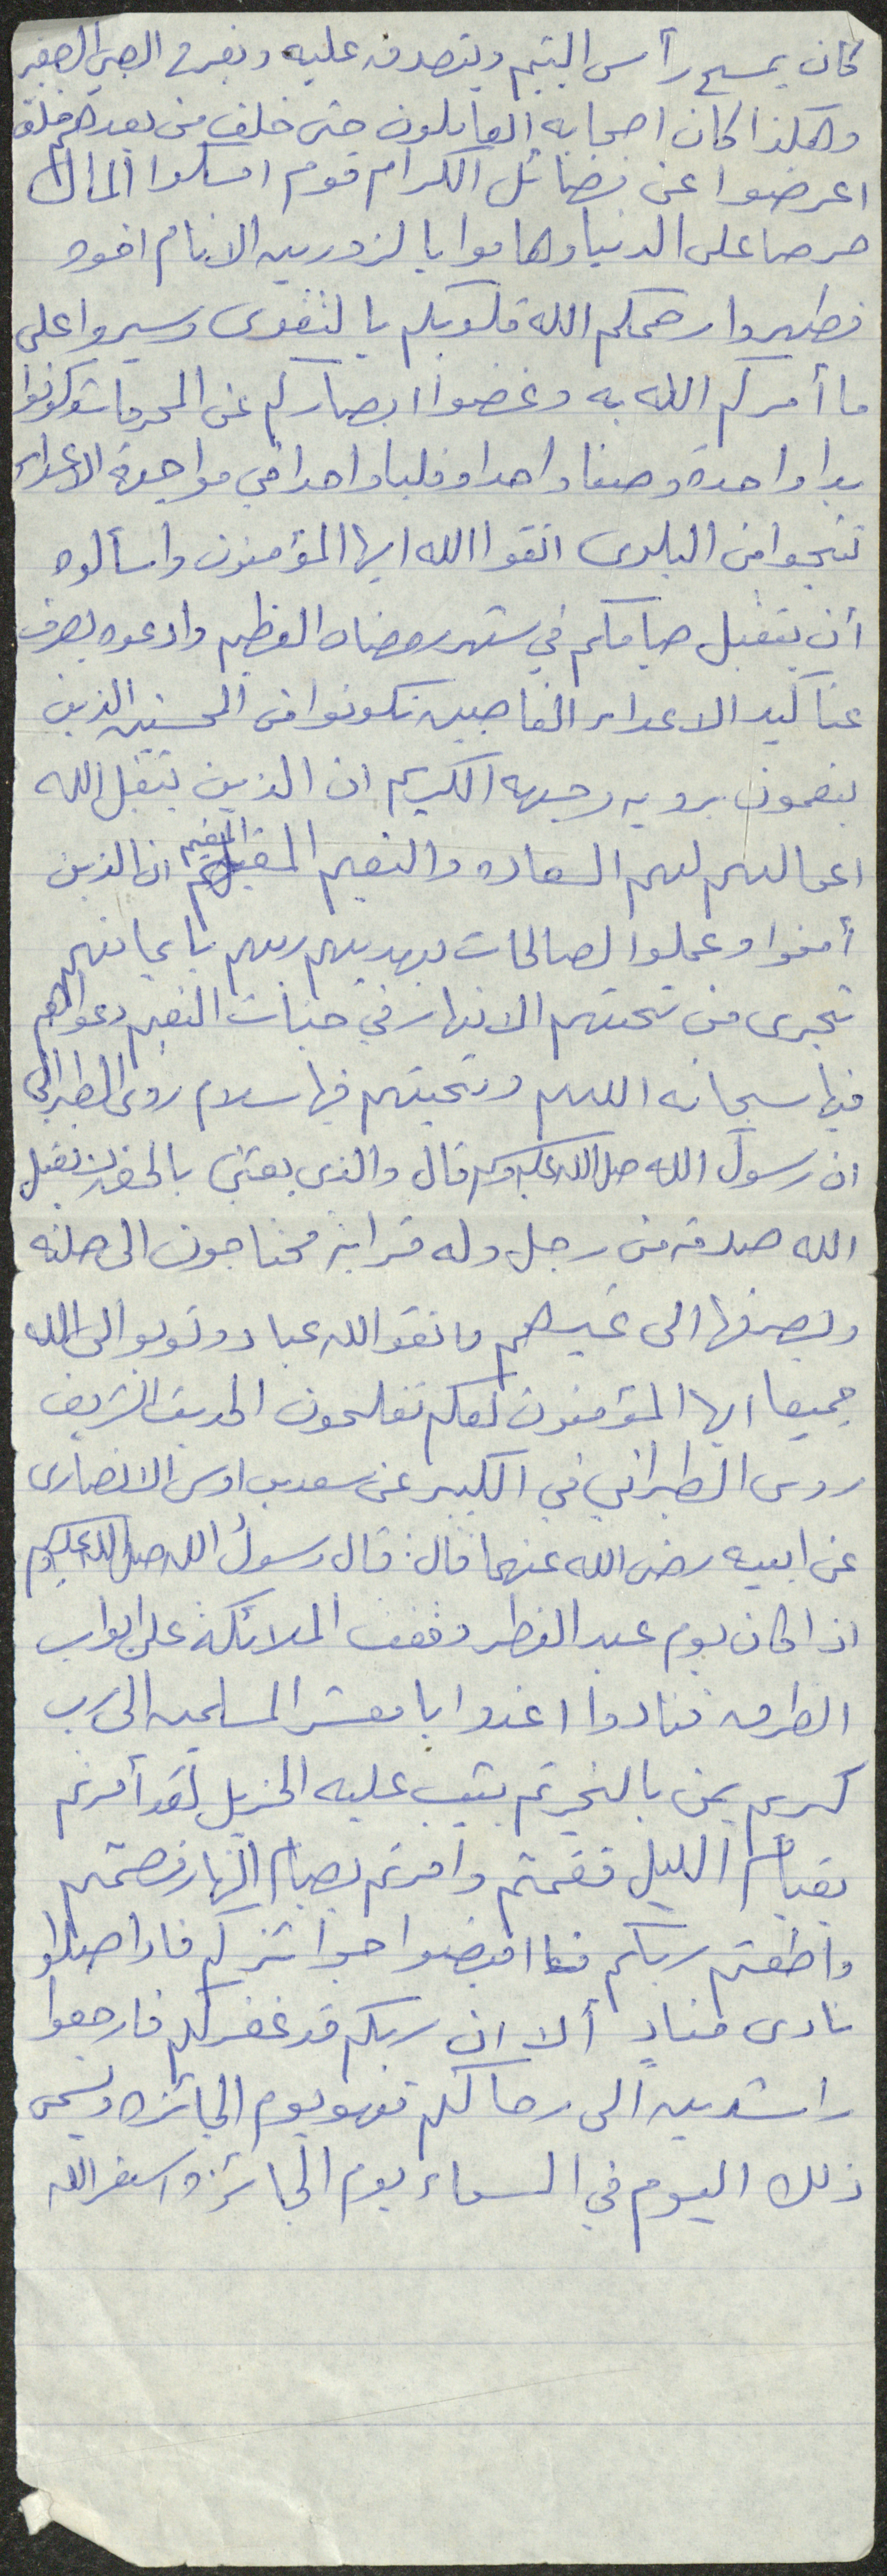 كان يمسح رأس اليتيم ويتصدق عليه ويفرح الصبي الصغير
وهكذا كان اصحابه العاملون حتى خلف من بعدهم خلف
اعرضوا عن فضائل الكرام قوم امسكوا المال
حرصا على الدنيا وهاموا بالزور بين الانام
فطهروا رحمكم الله قلوبكم بالتقوى وسيروا على
ما أمركم الله به وغضوا ابصاركم عن المحرمات وكونوا
يدا واحدة وصفا واحدا وقلبا واحدا في مواجهة الاعداء
تنجوا من البلوى اتقوا الله ايها المؤمنون واسألوه
أن يتقبل صيامكم في شهر رمضان العظيم وادعوه يصرف
عنا كيد الاعداء الغاصبين تكونوا من المحسنين الذين
ينعمون برويه وجهه الكريم ان الذين يتقبل الله
اعمالهم لهم السعاده والنعيم المقيم ان الذين
أمنوا وعملوا لصالحات يهديهم ربهم بايمانهم
تجرى من تحتهم الانهار في جنات النعيم دعواهم
فيها سبحانه اللهم وتحيتهم فيها سلام روى الطبراني
ان رسول الله صلى الله عليه وسلم قال والذي بعثني بالحق لا يقبل
الله صدقه من رجل وله قرابة محتاجون الى صلته
ويصرفها الى غيرهم فاتقوا الله عباد وتوبوا الى الله
جميعا ايها المؤمنون لعلكم تفلحون الحديث الشريف
روى الطبراني في الكبير عن سعد بن اوس الانصارى
عن ابيه رضى الله عنهما قال: قال رسول الله صلى الله عليه وسلم
اذا كان يوم عيد الفطر وقفت الملائكة على ابواب
الطرق فنادوا اغدوا يا معشر المسلمين الى رب
كريم يمن بالخير ثم يثيب عليه الجزيل لقد أمرتم
بقيام الليل فقمتم وامرتم بصيام النهار فصمتم
واطعتم ربكم فاقبضوا جوائزكم فاذا صلوا
نادى منادٍ ألا ان ربكم قد غفر لكم فارجعوا
راشدين الى رحالكم فهو يوم الجائزه ويسمى
ذلك اليوم في السماء يوم الجائزه واستغفر الله